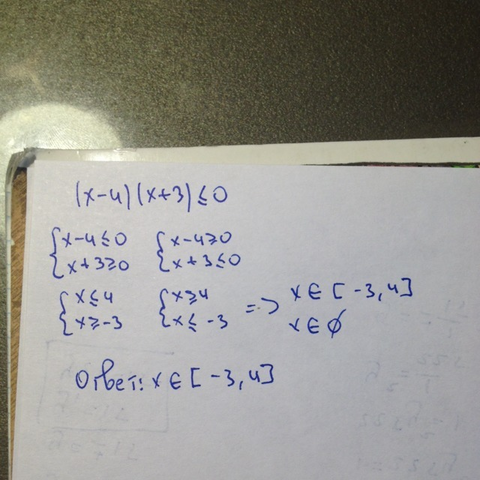 (x-4)(x+3)≤0
{x-4≤0 {x-4≥0
{x+3≥0 {x+3≤0
{x≤4 {x≥4 => x∈[-3,4]
{x≥-3 {x≤-3 x∈∅
Ответ: x∈[-3,4]